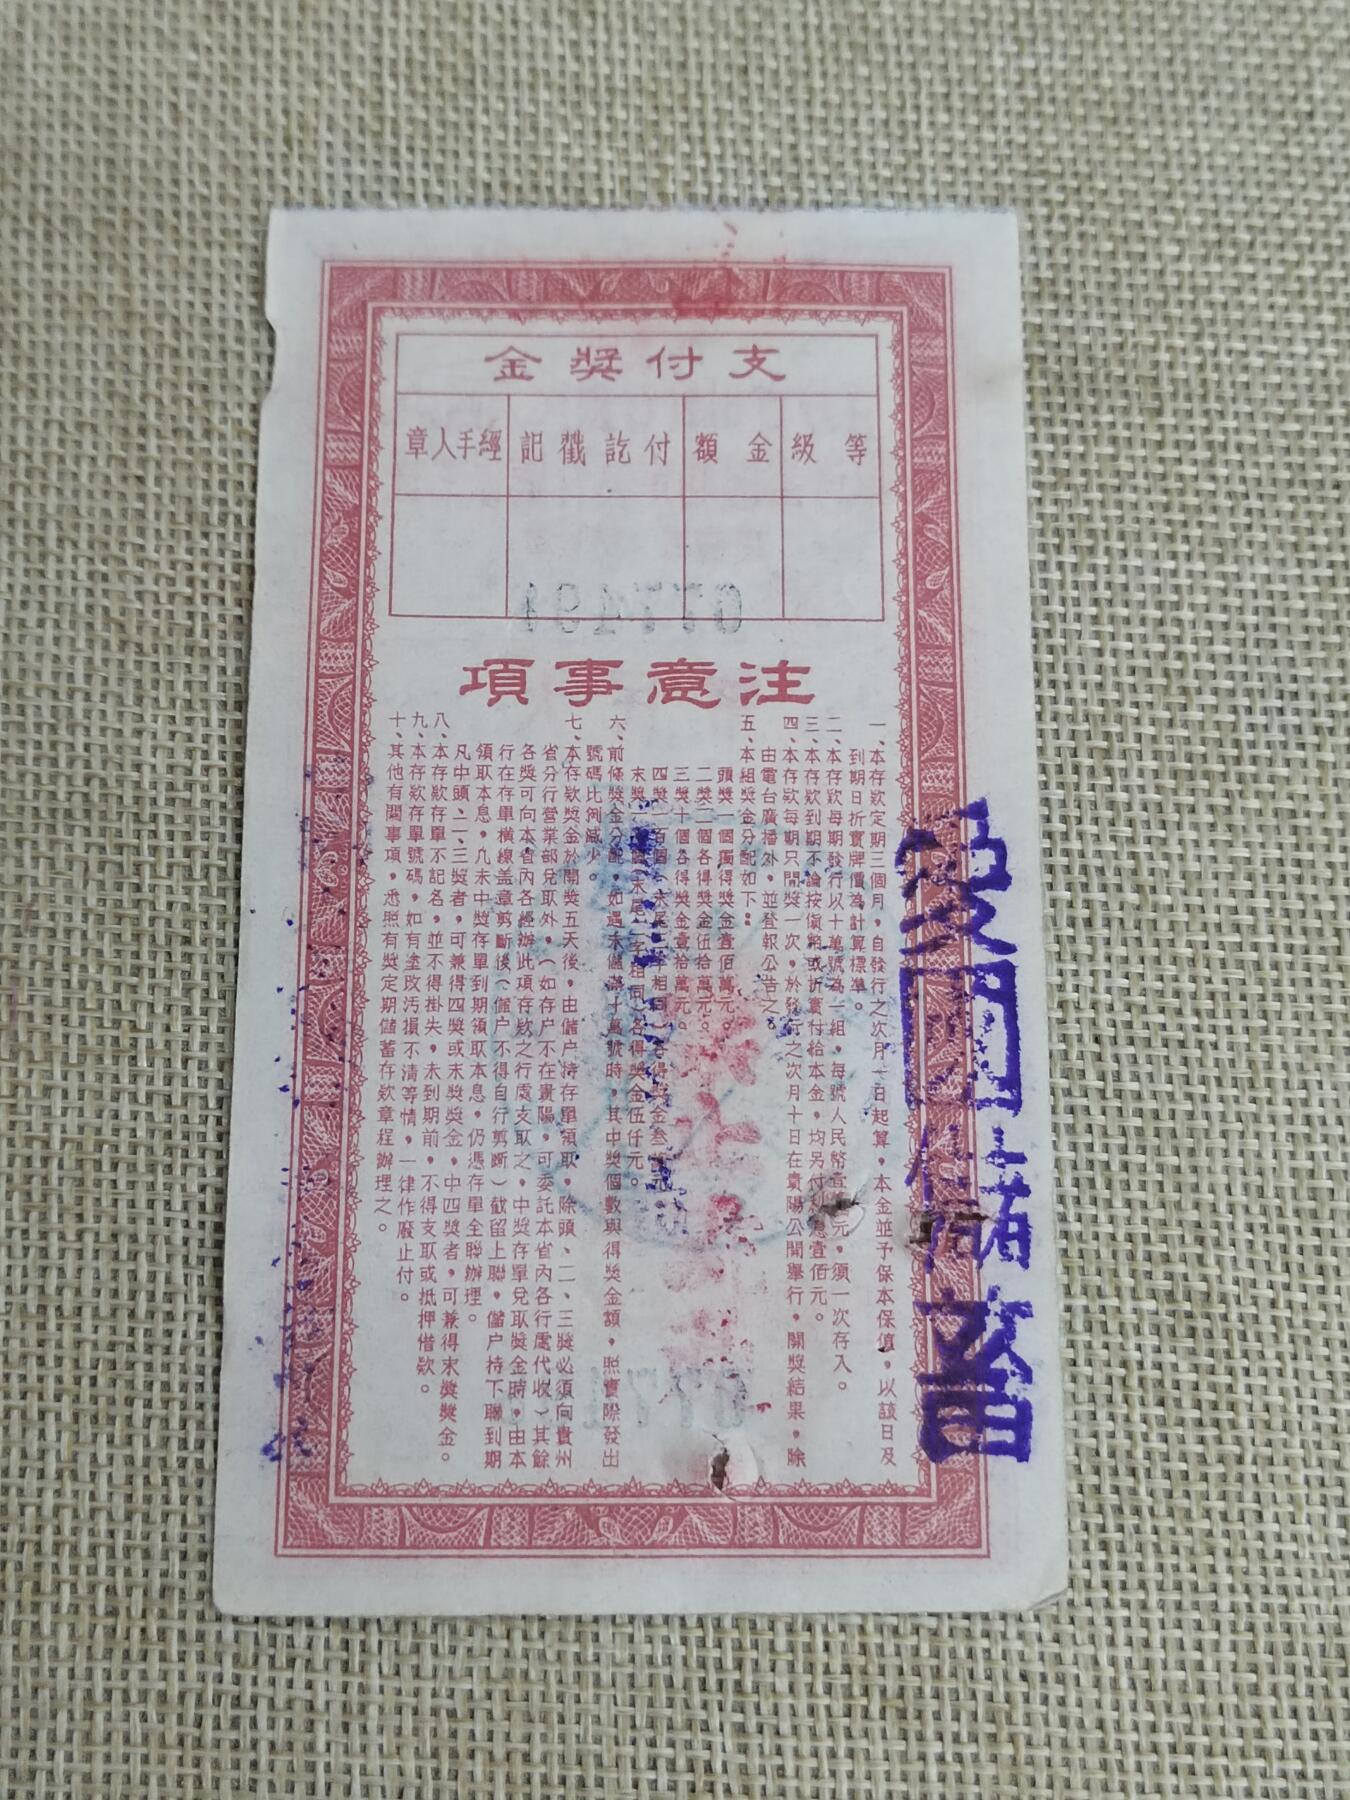 支付獎金
等級
金額
付訖戳記
經手人章
077491
注意事項
一、本存欵定期三個月，自發行之次月一日起算，本金並予保本保值，以該日及
到期日折實牌價為計算標準。
二、本存欵每期發行以十萬號為一組，每號人民幣壹 元，須一次存入。
三、本存欵到期不論按貨幣或折實付給本金，均另付利息壹佰元。
四、本存欵每期只開獎一次，於發行之次月十日在貴陽公開舉行，開獎結果，除
由電台廣播外，並登報公告之。
五、本組獎金分配如下：
頭獎一個獨得獎金壹佰萬元。
二獎二個各得獎金伍拾萬元。
三獎十個各得獎金壹拾萬元。
四獎一百個（末尾三字相同）各得獎金叁 元。
末獎 個（末尾二字相同）各得獎金伍仟元。
六、前條獎金分配，如遇未儲滿十萬號時，其中獎個數與得獎金額，照實際發出
號碼比例減少。
七、本存欵獎金於開獎五天後，由儲户持存單領取，除頭、二、三獎必須向貴州
省分行營業部兌取外，（如存户不在貴陽，可委託本省內各行處代收）其餘
各獎可向本省內各經辦此項存欵之行處支取之，中獎存單兌取獎金時，由本
行在存單橫線盖章剪斷後（儲户不得自行剪斷）截留上聯，儲户持下聯到期
領取本息，凡未中獎存單到期領取本息，仍憑存單全聯辦理。
凡中頭、二、三獎者，可兼得四獎或末獎獎金，中四獎者，可兼得末獎獎金。
八、本存欵存單不記名，並不得掛失，未到期前，不得支取或抵押借欵。
九、本存欵存單號碼，如有塗改汚損不清等情，一律作廢止付。
十、其他有關事項，悉照有獎定期儲蓄存欵章程辦理之。
愛國儲蓄